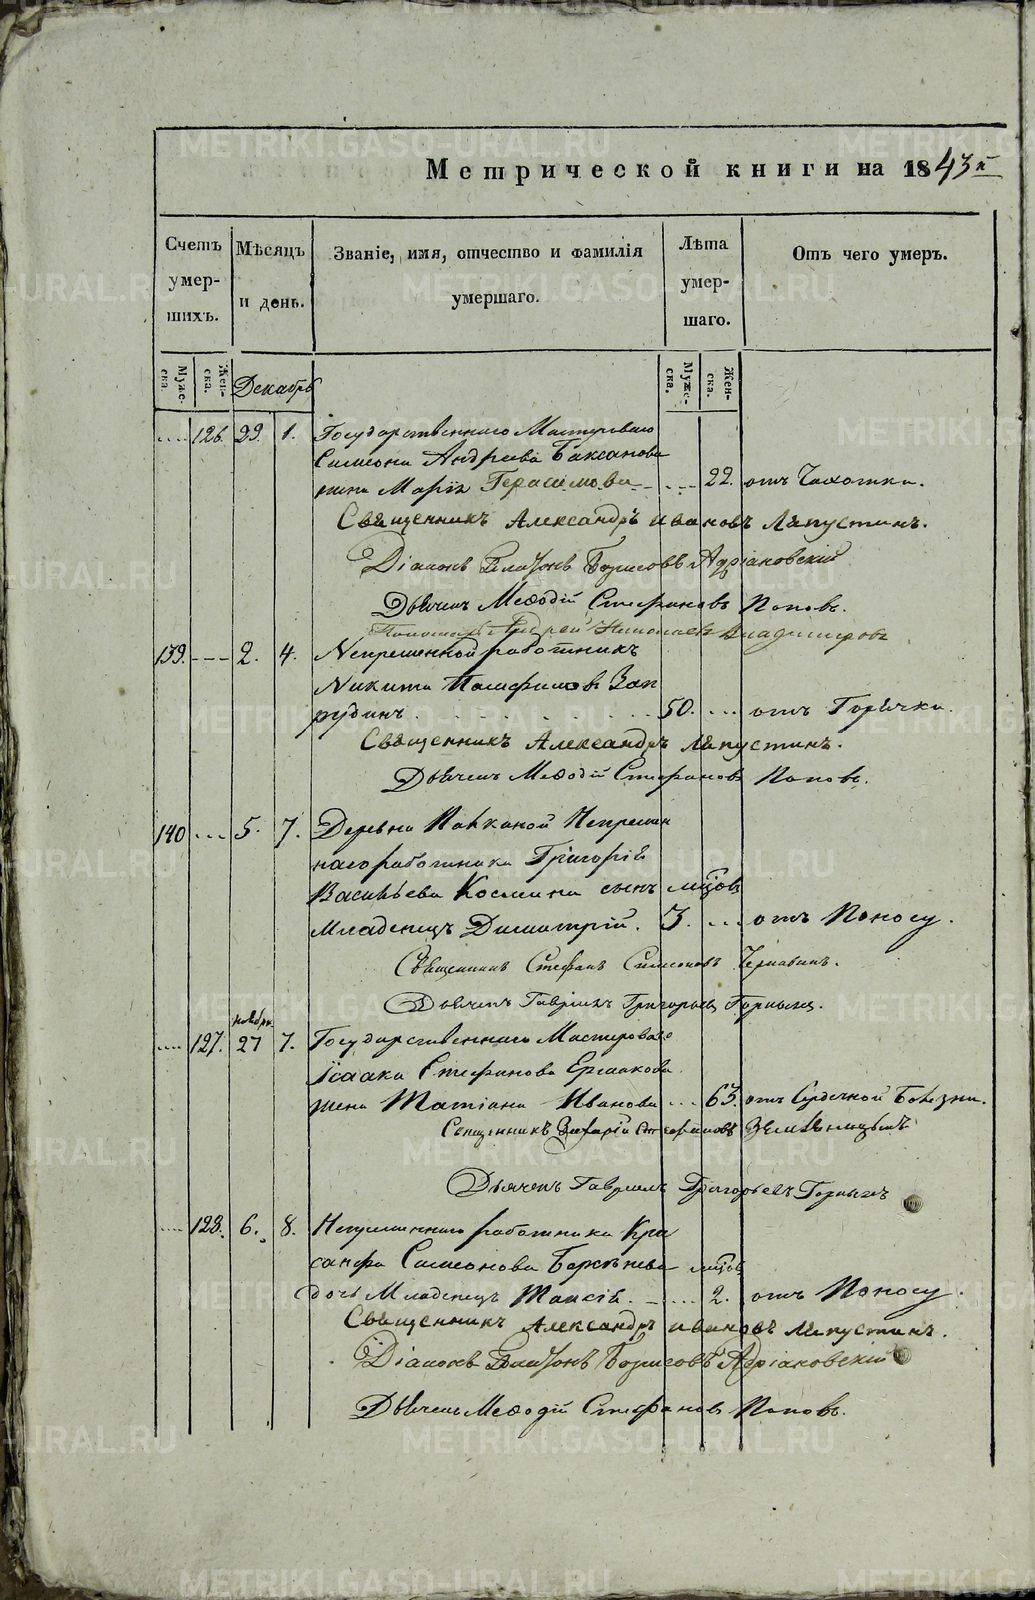 Метрической книги на 1843й
Счетъ умер-шихъ.
Мѣсяцъ и день.
Званіе, имя, отчество и фамилія умершаго.
Лѣта умер-шаго.
Отъ чего умеръ.
Муже-ска.
Жен-ска.
Декабрь
Муже-ска.
Жен-ска.
126. 29. 1. Государственнаго Мастероваго
Симеона Андреева Баксанова
жена Марія Герасимова 22. отъ Чахотки.
Священникъ Александръ Ивановъ Ляпустинъ.
Діаконъ Платонъ Борисовъ Адріановскій
Дьячекъ Меѳодій Стефановъ Поповъ.
Пономарь Андрей Николаевъ Владимировъ
139. 2. 4. Непременной работникъ
Никита Памфиловъ Зап
рудинъ 50. отъ Горячки.
Священникъ Александръ Ляпустинъ.
Дьячекъ Меѳодій Стефановъ Поповъ.
140 5. 7. Деревни Непремен
наго работника Григорій
Васильева Космина сынъ мцовъ
Младенецъ Димитрій. 3. отъ Поносу.
Священникъ Стефанъ Симеоновъ Чернавинъ.
Дьячекъ Гавріилъ Григорьевъ Горныхъ.
ноября
127. 27 7. Государственнаго Мастероваго
Ісаака Стефанова Ермакова
жена Татіана Иванова 63. отъ Сердечной Болезни.
Священникъ Захарій Стефановъ Земляницынъ
Дьячекъ Гавріилъ Григорьевъ Горныхъ
128. 6. 8. Непременнаго работника Хри
санфа Симеонова Берсенева мцовъ
дочь Младенецъ Таисія. 2. отъ Поносу.
Священникъ Александръ Ивановъ Ляпустинъ.
Діаконъ Платонъ Борисовъ Адріановскій
Дьячекъ Меѳодій Стефановъ Поповъ.